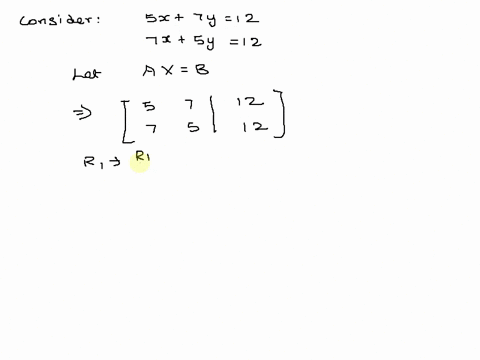 Consider: 5x + 7y = 12
7x + 5y = 12
Let AX = B
⇒ [ 5 7 | 12
7 5 | 12 ]
R₁ → R₁